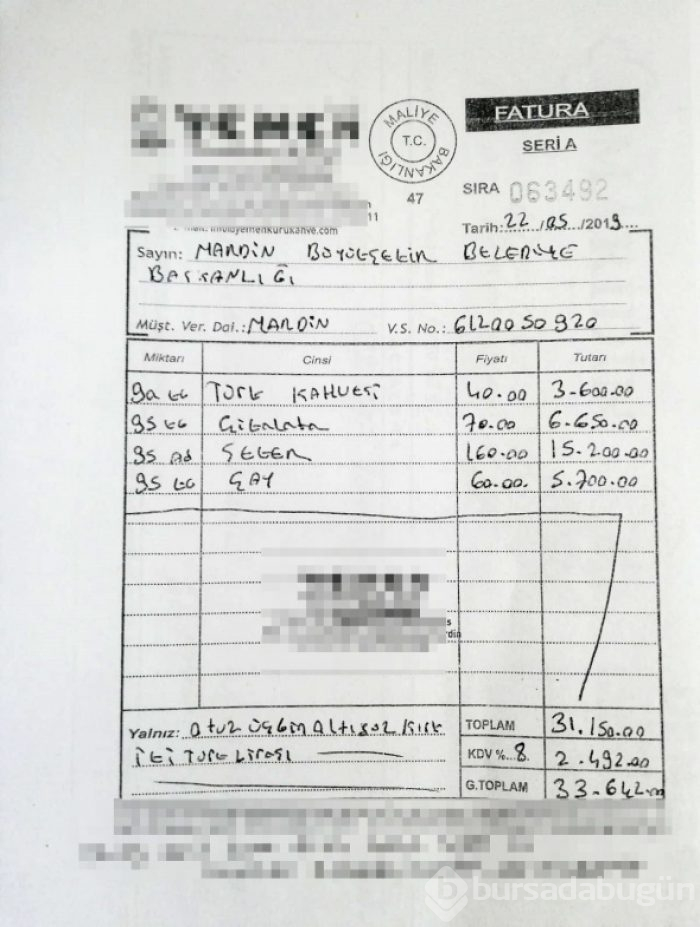 YEMEN
FATURA
SERİ A
MALİYE BAKANLIĞI
T.C.
47
SIRA 063492
11
yemenkurukahve.com
Tarih: 22/05/2019
Sayın: MARDİN BÜYÜKŞEHİR BELEDİYE
BAŞKANLIĞI
Müşt. Ver. Dai.: MARDİN V.S. No.: 6120050920
Miktarı Cinsi Fiyatı Tutarı
90 KG TÜRK KAHVESİ 40.00 3.600.00
95 KG Çikolata 70.00 6.650.00
95 Ad ŞEKER 160.00 15.200.00
95 KG ÇAY 60.00 5.700.00
Yalnız: Otuz üçbin Altıyüz Kırk
İKİ TÜRK LİRASI
TOPLAM 31.150.00
KDV %8 2.492.00
G.TOPLAM 33.642.00
bursadabugün